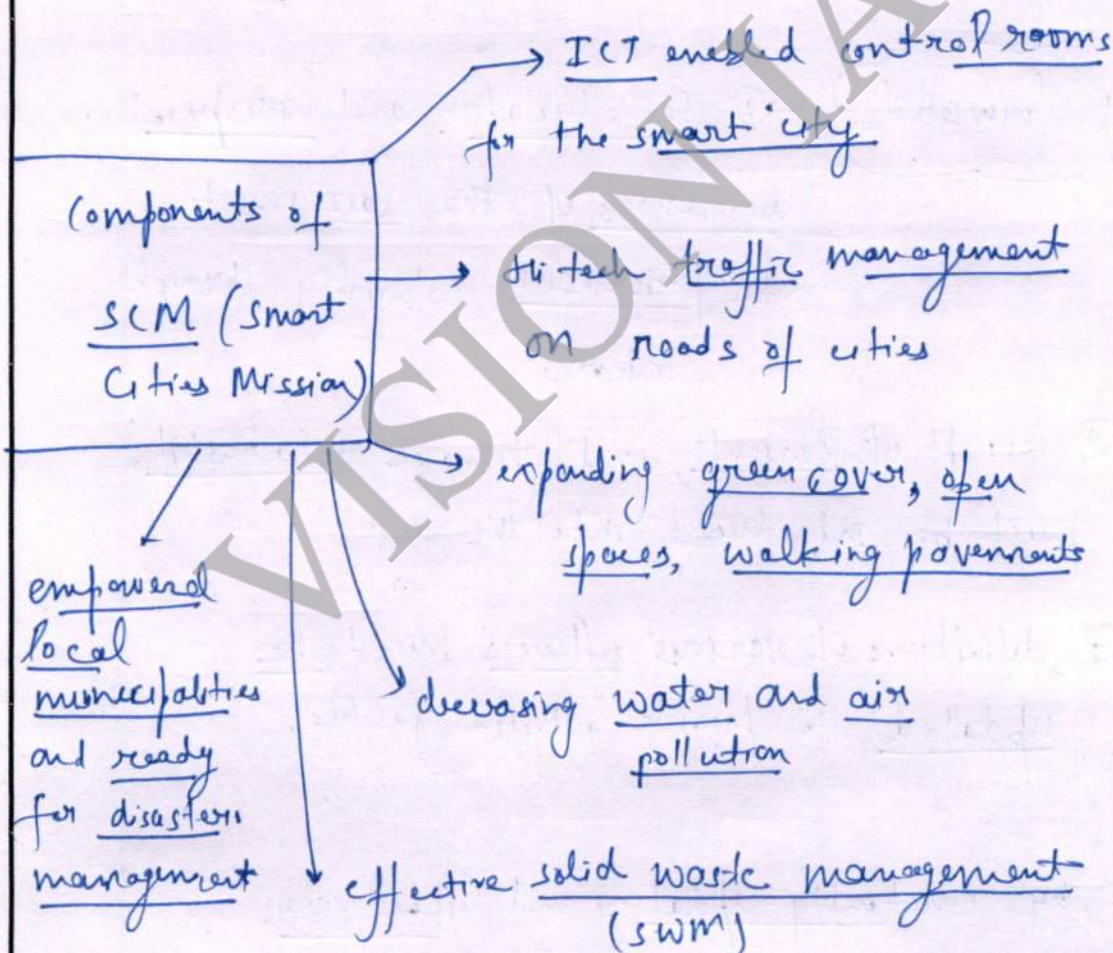 Components of
SCM (Smart
Cities Mission)
ICT enabled control rooms
for the smart city
Hi tech traffic management
on roads of cities
expanding green cover, open
spaces, walking pavements
decreasing water and air
pollution
effective solid waste management
(SWM)
empowered
local
municipalities
and ready
for disaster
management
VISION IA